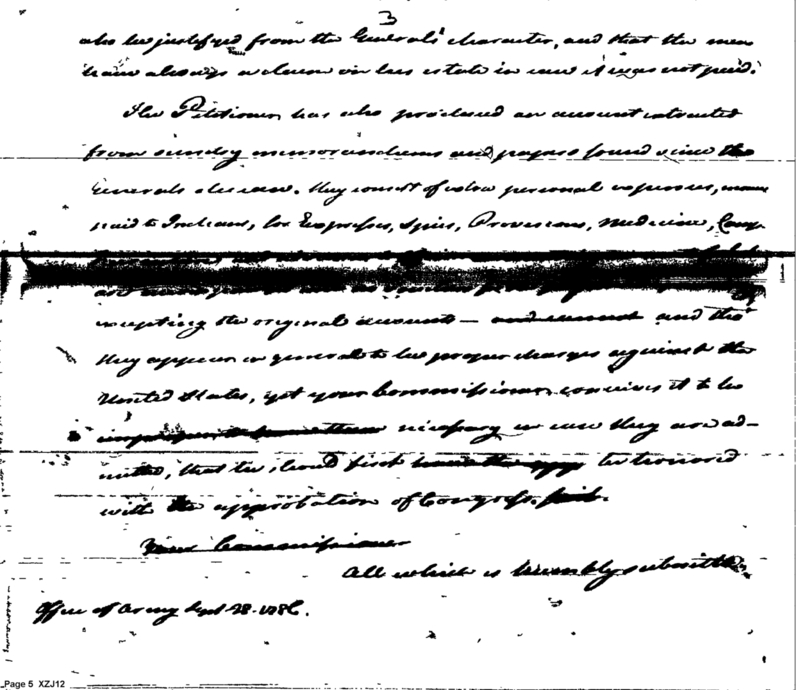 3
also be justifyed from the Generals' character, and that the men
have always a claim on his estate in case it was not paid.
The Petitioner has also produced an account extracted
from sundry memorandums and papers found since the
Generals decease. They consist of extra personal expenses, monies
paid to Indians, for Expresses, Spies, Provisions, Medicine, Camp
are
excepting the original accounts — and cannot and tho'
they appear in general to be proper charges against the
United States, yet your Commissioner conceives it to be
necessary in case they are ad-
mitted, that they should first be honored
with the approbation of Congress.
Your Commissioner
All which is humbly submitted
Office of Army Sept 28. 1786.
Page 5 XZJ12